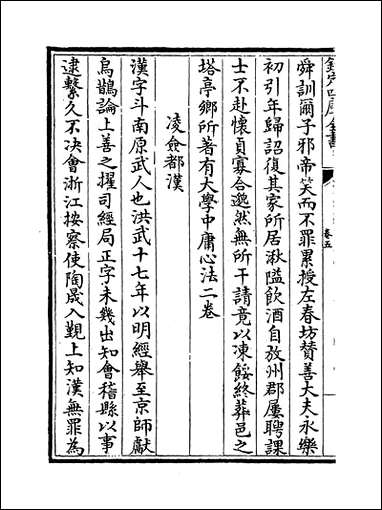 欽定四庫全書
卷五
舜訓爾子邪帝笑而不罪累授左春坊贊善大夫永樂
初引年歸詔復其家所居湫隘飲酒自放州郡屢聘課
士不赴懷貞寡合邈然無所干請竟以凍餒終葬邑之
塔亭鄉所著有大學中庸心法二卷
凌僉都漢
漢字斗南原武人也洪武十七年以明經舉至京師獻
烏鵲論上善之擢司經局正字未幾出知會稽縣以事
逮繫久不決會浙江按察使陶晟入覲上知漢無罪為